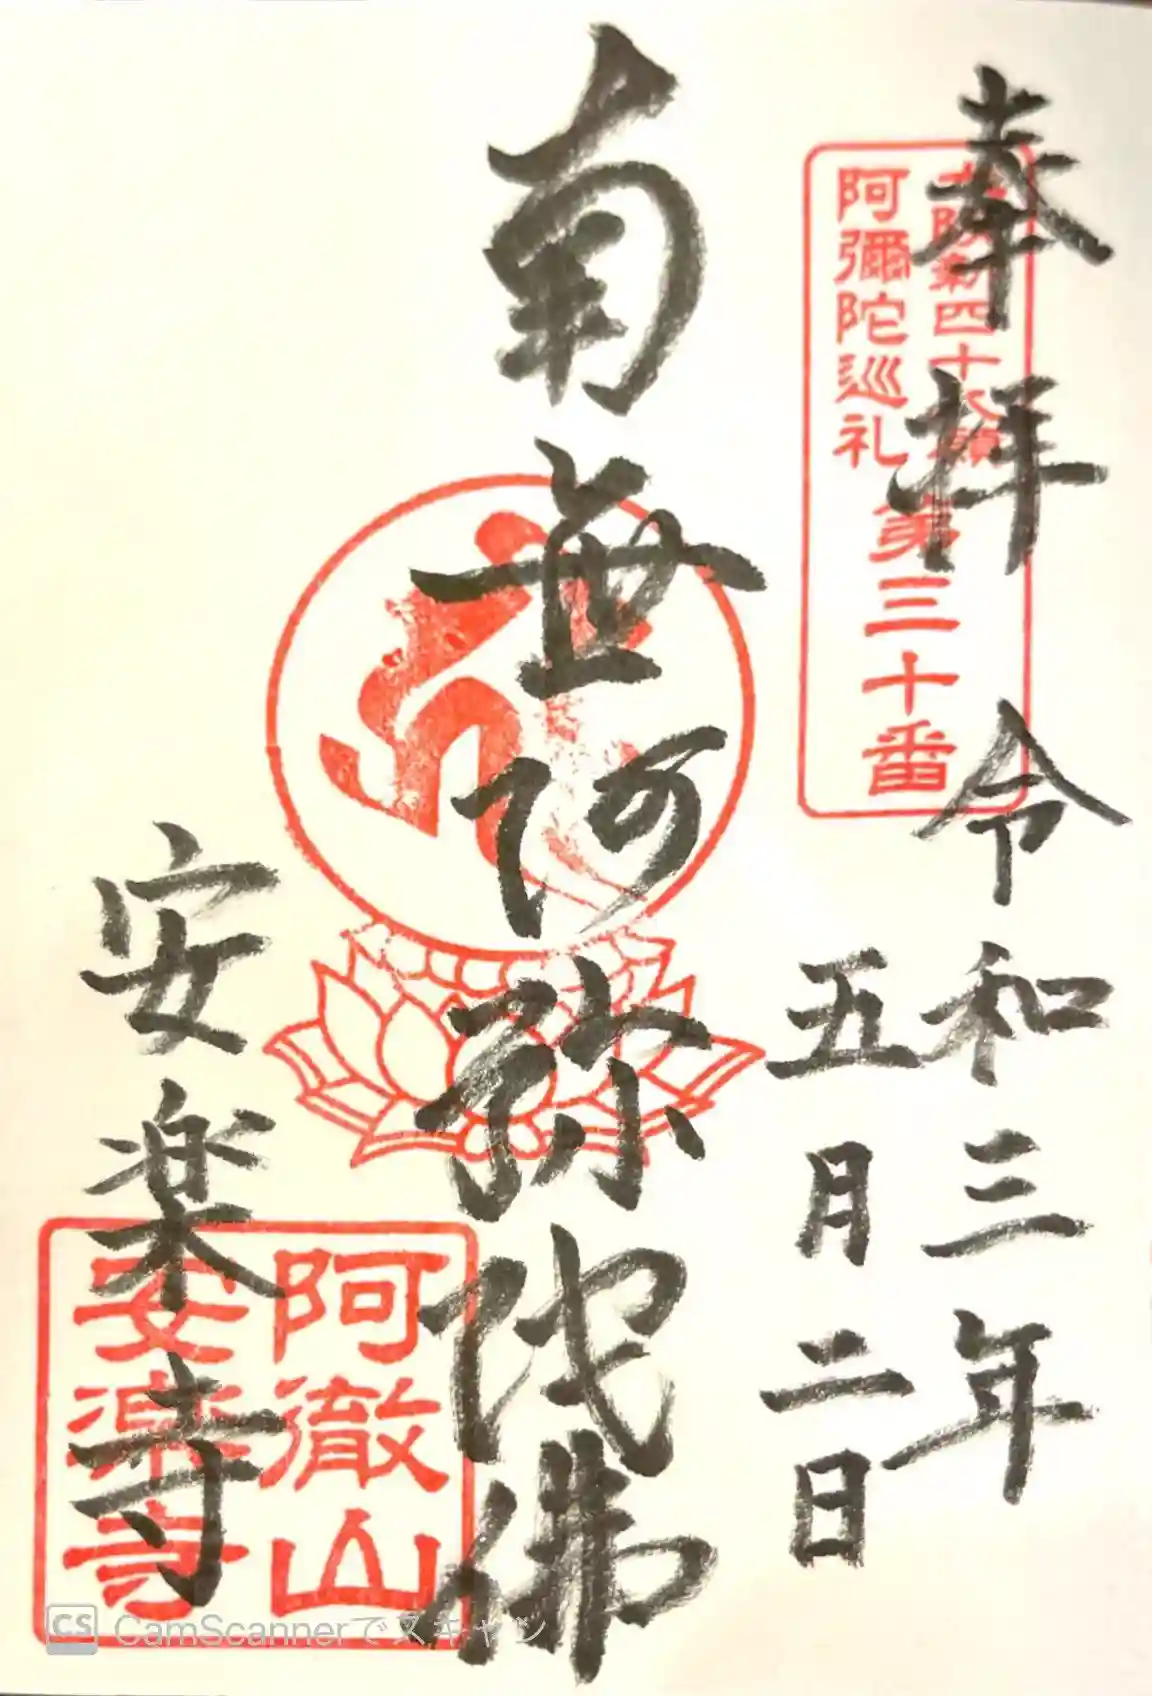 奉拝
令和三年
五月二日
南無阿弥陀佛
安楽寺
北陸新四十八願
阿彌陀巡礼
第三十番
阿徹山
安楽寺
CS CamScannerでスキャン